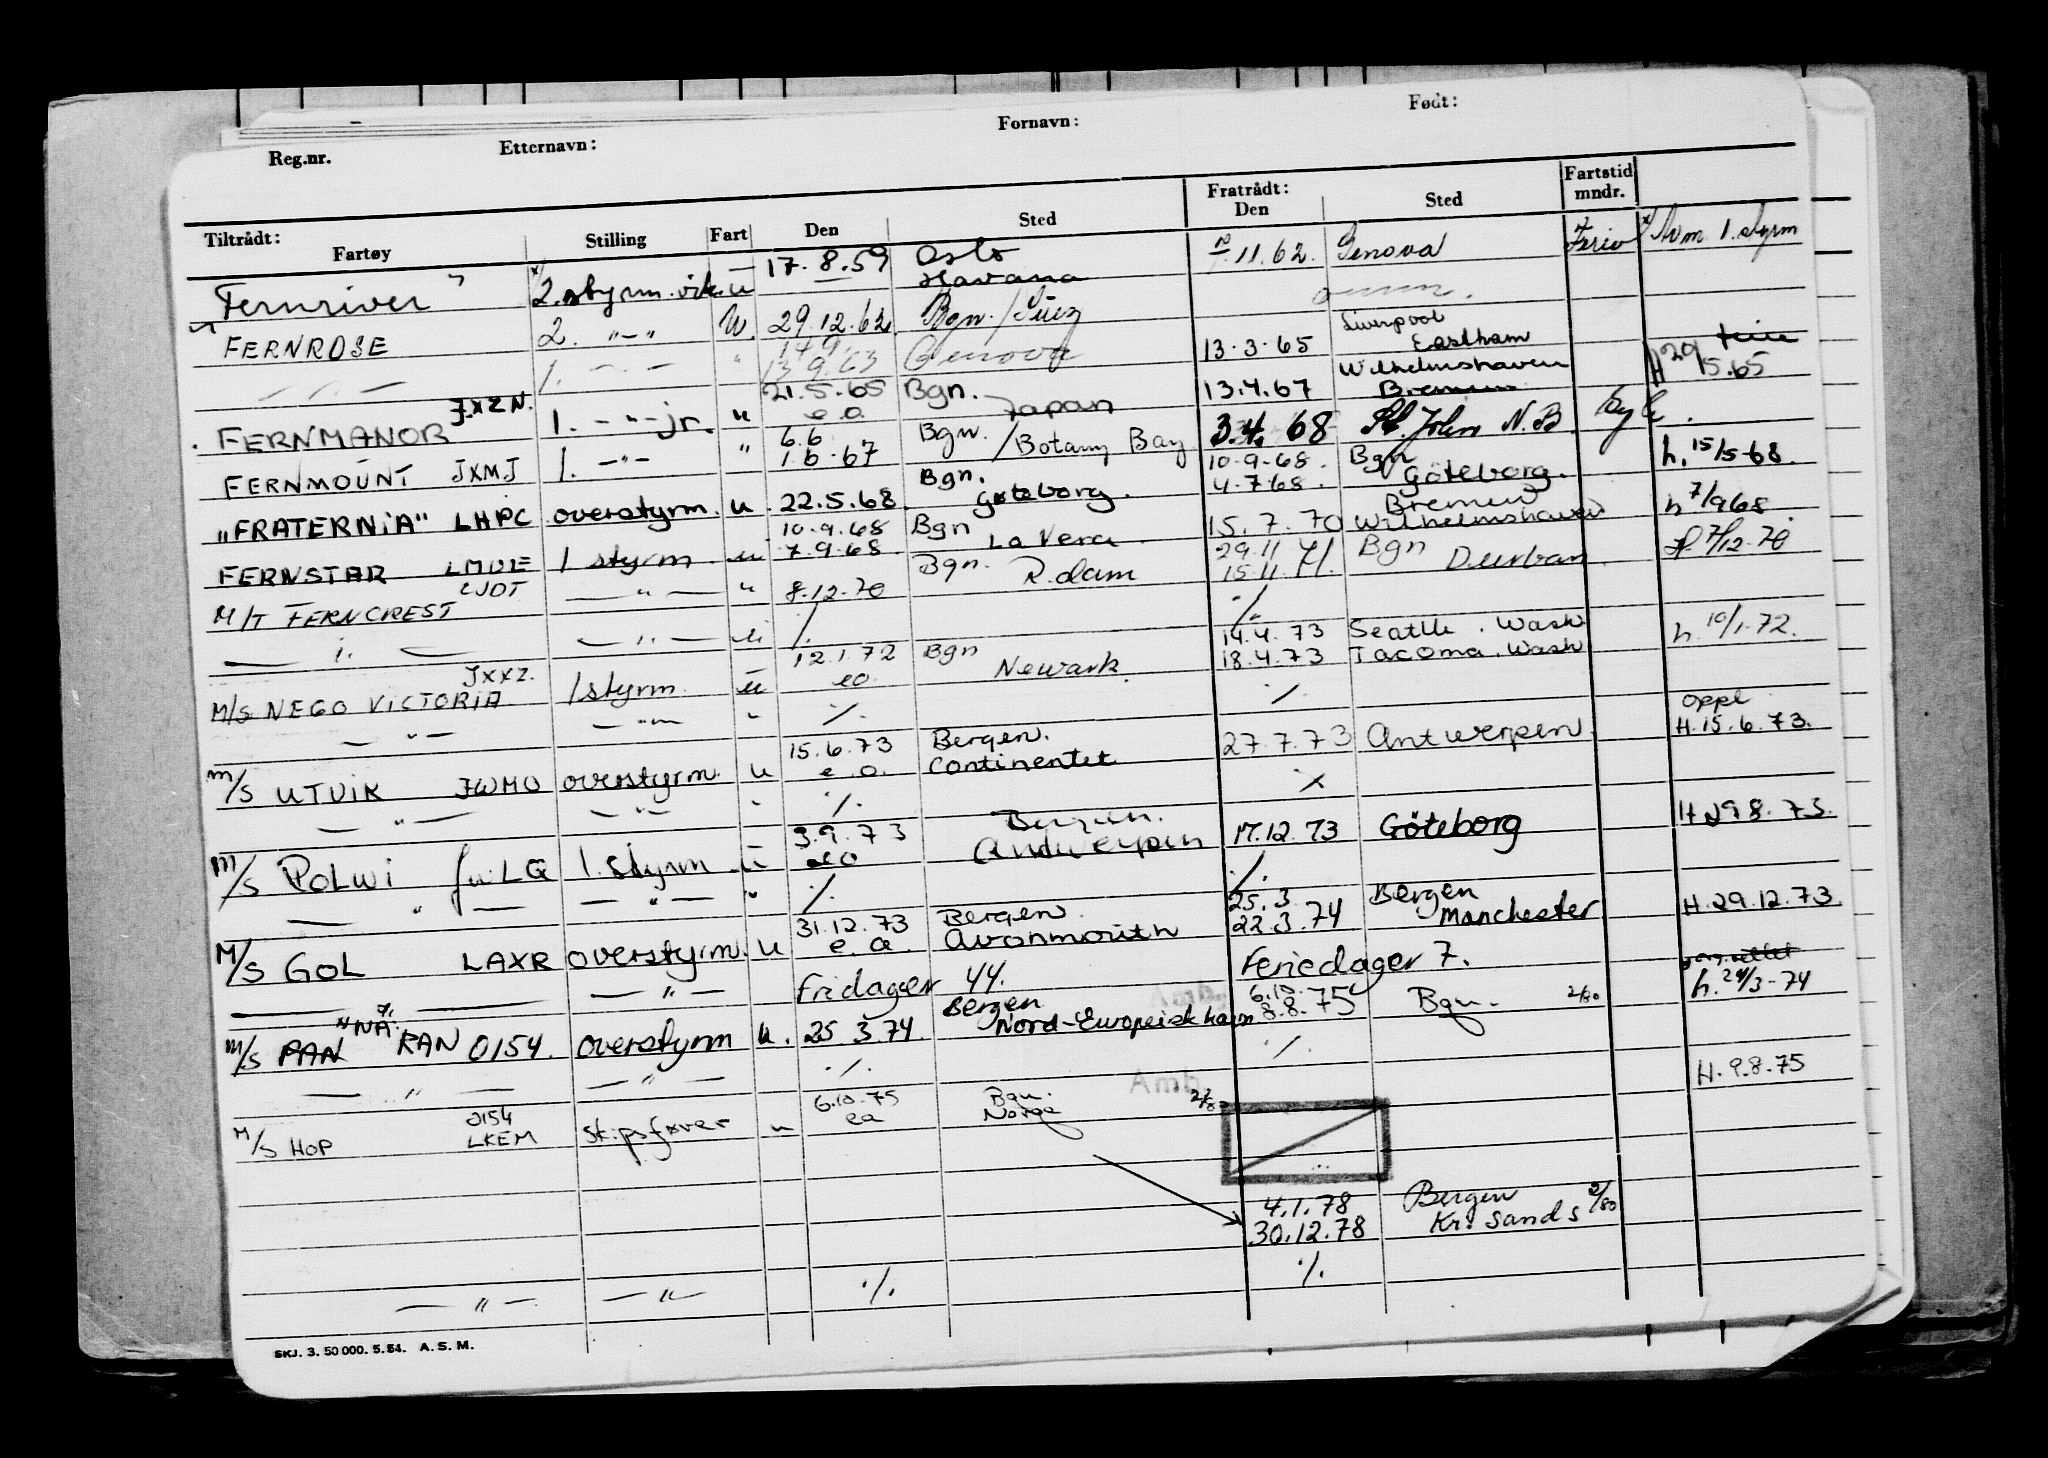 Reg.nr. Etternavn: Fornavn: Født:
Tiltrådt: Fratrådt: Fartstid
Fartøy Stilling Fart Den Sted Den Sted mndr.
Fernriver 2. styrm. vik. u 17.8.59 Oslo Havana 11.62. Genova Ferie 1. styrm
FERNROSE 2. -"- U. 29.12.62. Bgn./Suez
1. - " - " 13.9.63 Genova 13.3.65 Liverpool Eastham
FERNMANOR JXZN. 1. -"- jr. u 21.5.65 e.o Bgn. Japan 13.4.67 Wilhelmshaven Bremen H 29/5.65
FERNMOUNT JXMJ 1. -"- " 6.6 1.6.67 Bgn. /Botany Bay 3.4.68 St. John N.B.
"FRATERNiA" LHPC overstyrm. u. 22.5.68. Bgn. Gøteborg. 10.9.68. 4.7.68. Bgn Göteborg. h. 15/5-68.
FERNSTAR LMVE 1 styrm u 10.9.68 7.9.68. Bgn La Vera 15.7.70 Bremen Wilhelmshaven h 7/9 68
M/T FERNCREST LJDT — " — " 8.12.70 Bgn. R.dam 29.11 15.11.71. Bgn Durban. 7/12-70
— " — — " — " ./. ./.
M/S NEGO VICTORIA JXXZ. 1 styrm u 12.1.72 eo Bgn Newark. 14.4.73 Seattle. Wash 18.4.73 Tacoma. Wash h. 10/1-72.
— " — — " — " ./. ./.
M/S UTVIK JWMO overstyrm. u 15.6.73 e.o. Bergen. Continentet 27.7.73 Antwerpen oppl H.15.6.73.
— " — — " — " ./. ./.
M/S POLWi 1. styrm u 3.9.73 eo Bergen. Antwerpen 17.12.73 Göteborg
— " — — " — " ./. ./.
M/S GOL LAXR overstyrm. u 31.12.73 e.o. Bergen Avonmouth 25.3 22.3.74 Bergen Manchester H.29.12.73.
— — " — Fridager 44. Feriedager 7.
M/S PAN RAN 0154. overstyrm u. 25.3.74. Bergen Nord-Europeisk havn Amb. 6.10. 8.8.75 Bgn. 2/80 h. 24/3-74
— " — — " — ./. ./.
M/S HOP 0154 LKEM Skipsfører u 6.10.75 ea Bgn. Norge Amb. 2/80 H.9.8.75
4.1.78 Bergen
30.12.78 Kr. sand s 2/80
— " — — " — ./. ./.
SKJ. 3. 50 000. 5.54. A.S.M.